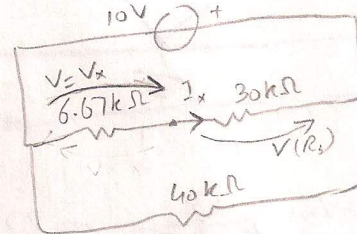 10V +
V=Vx
6.67kΩ Ix 30kΩ
V(R3)
40kΩ